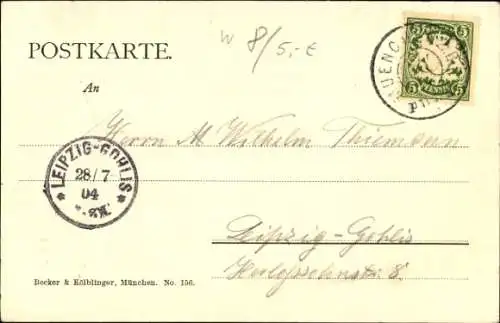 W 8/5,-€
POSTKARTE.
5 5
5 5
MUENCHEN
An
Herrn M Wilhelm Thiemann
LEIPZIG-GOHLIS
28/7
04
Leipzig-Gohlis
8.
Becker & Kölblinger, München. No. 156.